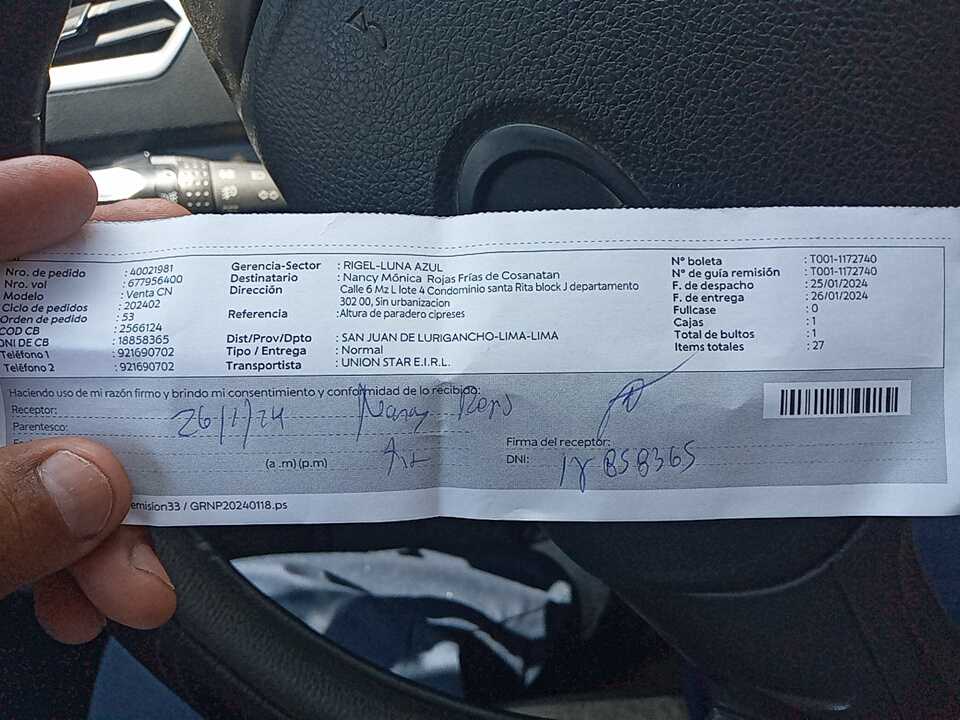 Nro. de pedido : 40021981
Nro. vol : 677956400
Modelo : Venta CN
Ciclo de pedidos : 202402
Orden de pedido : 53
COD CB : 2566124
DNI DE CB : 18858365
Teléfono 1 : 921690702
Teléfono 2 : 921690702
Gerencia-Sector : RIGEL-LUNA AZUL
Destinatario : Nancy Mónica Rojas Frías de Cosanatan
Dirección Calle 6 Mz L lote 4 Condominio santa Rita block J departamento
302 00, Sin urbanizacion
Referencia : Altura de paradero cipreses
Dist/Prov/Dpto : SAN JUAN DE LURIGANCHO-LIMA-LIMA
Tipo / Entrega : Normal
Transportista : UNION STAR E.I.R.L.
N° boleta : T001-1172740
N° de guía remisión : T001-1172740
F. de despacho : 25/01/2024
F. de entrega : 26/01/2024
Fullcase : 0
Cajas : 1
Total de bultos : 1
Items totales : 27
Haciendo uso de mi razón firmo y brindo mi consentimiento y conformidad de lo recibido:
Receptor: Nancy
Parentesco: 26/1/24
(a .m) (p.m)
Firma del receptor:
DNI: 18858365
emision33 / GRNP20240118.ps